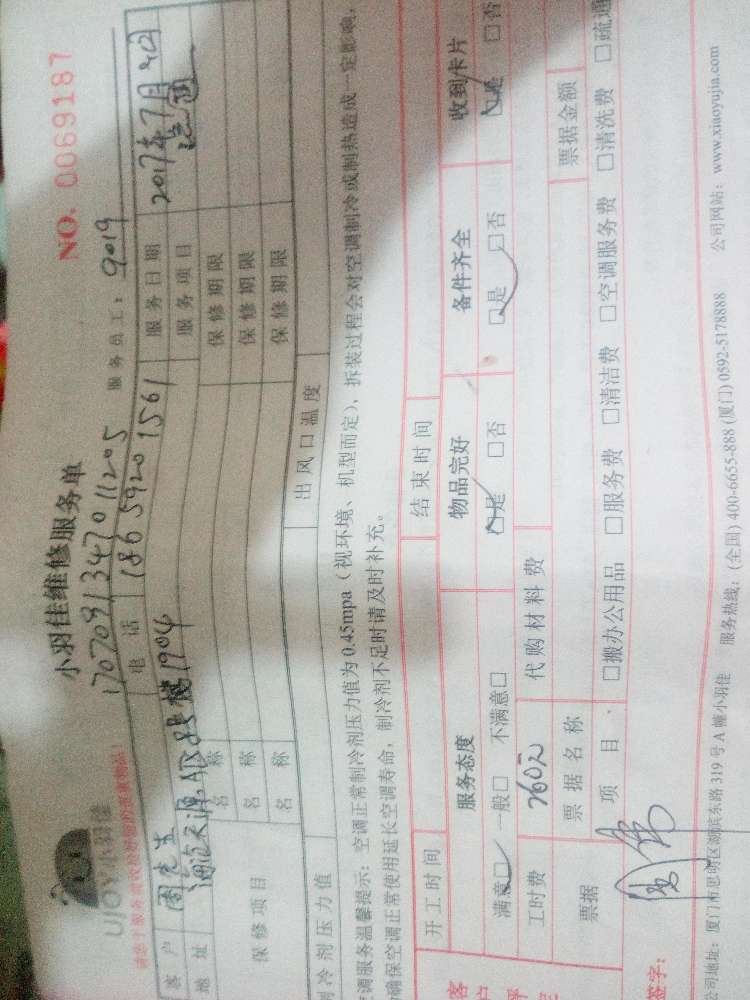 UJOY小羽佳
小羽佳维修服务单
NO. 0069187
170709134701120S
服务员工: 9019
客户 周先生
电话 186 5920 1561
服务日期 2017年7月9日
地址
1904
服务项目
保修项目
名称 保修期限
名称 保修期限
名称 保修期限
制冷剂压力值
出风口温度
空调服务温馨提示: 空调正常制冷剂压力值为0.45mpa (视环境、机型而定), 拆装过程会对空调制冷或制热造成一定影响,
确保空调正常使用延长空调寿命, 制冷剂不足时请及时补充。
开工时间 结束时间
服务态度 物品完好 备件齐全 收到卡片
满意□ 一般□ 不满意□ □是 □否 □是 □否 □是 □否
工时费 260元 代购材料费
票据 票据名称 票据金额
项目 □搬办公用品 □服务费 □清洁费 □空调服务费 □清洗费 □疏通
签字:
公司地址: 厦门市思明区湖滨东路319号A幢小羽佳 服务热线: (全国) 400-6655-888 (厦门) 0592-5178888 公司网站: www.xiaoyujia.com